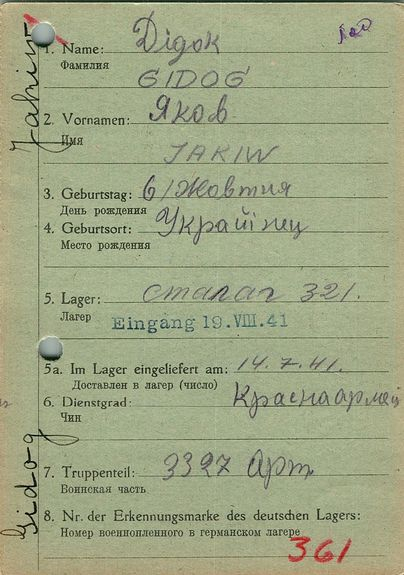 Jakiw
Gidog
1. Name: Дідок
Фамилия
GIDOG
2. Vornamen: Яков
Имя
JAKIW
3. Geburtstag: 6/Жовтня
День рождения
4. Geburtsort: Украйінец
Место рождения
5. Lager: сталаг 321.
Лагер
Eingang 19. VIII. 41
5a. Im Lager eingeliefert am: 14.7.41.
Доставлен в лагер (число)
6. Dienstgrad: Краснаармей
Чин
7. Truppenteil: 3327 Арт
Воинская часть
8. Nr. der Erkennungsmarke des deutschen Lagers:
Номер военнопленного в германском лагере
361